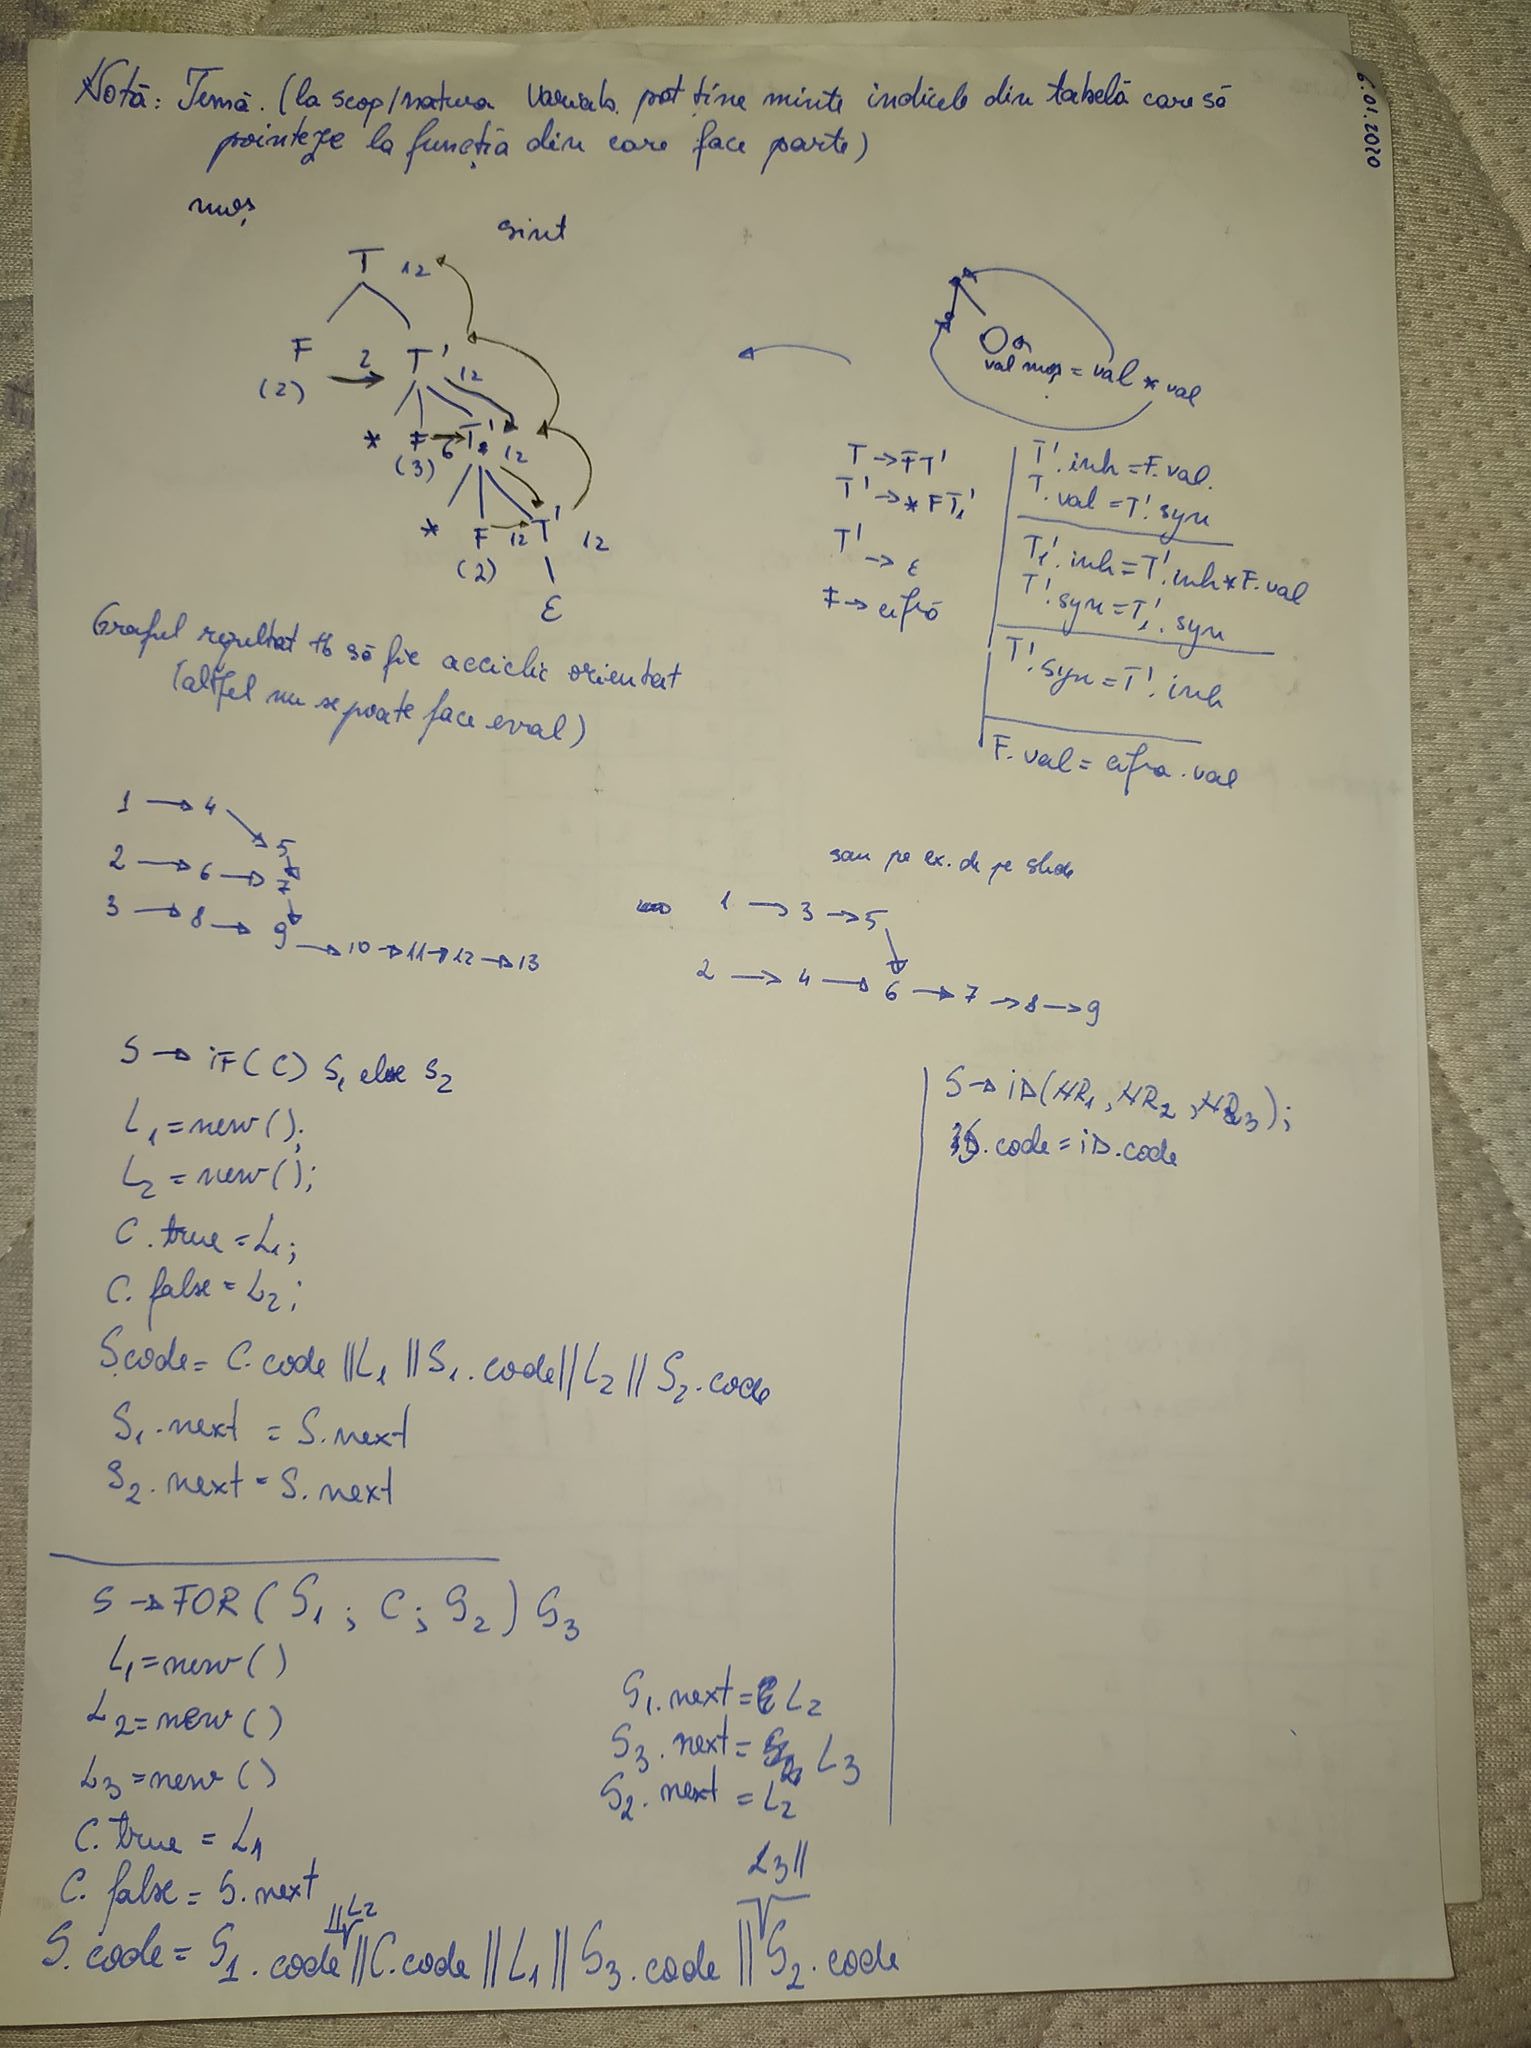 6.01.2020
Notă: Temă. (la scop/natura variab. pot ține minte indicele din tabelă care să
pointeze la funcția din care face parte)
moș
sint
T 12
F 2 T' 12
(2)
* F 6 T' 12
(3)
* F 12 T' 12
(2)
ε
val moș = val * val
T → FT'
T' → *FT₁'
T' → ε
F → cifră
T'.inh = F.val.
T.val = T'.syn
T₁'.inh = T'.inh * F.val
T'.syn = T₁'.syn
T'.syn = T'.inh
F.val = cifra.val
Graful rezultat tb să fie acciclic orientat
(altfel nu se poate face eval)
1 → 4
5
2 → 6 → 7
3 → 8 → 9 → 10 → 11 → 12 → 13
sau pe ex. de pe slide
1 → 3 → 5
2 → 4 → 6 → 7 → 8 → 9
S → iF(C) S₁ else S₂
L₁ = new();
L₂ = new();
C.true = L₁;
C.false = L₂;
S.code = C.code || L₁ || S₁.code || L₂ || S₂.code
S₁.next = S.next
S₂.next = S.next
S → iD(NR₁, NR₂, NR₃);
S.code = iD.code
S → FOR(S₁; C; S₂) S₃
L₁ = new()
L₂ = new()
L₃ = new()
C.true = L₁
C.false = S.next
S₁.next = L₂
S₃.next = L₃
S₂.next = L₂
|| L₂
L₃ ||
S.code = S₁.code || C.code || L₁ || S₃.code || S₂.code